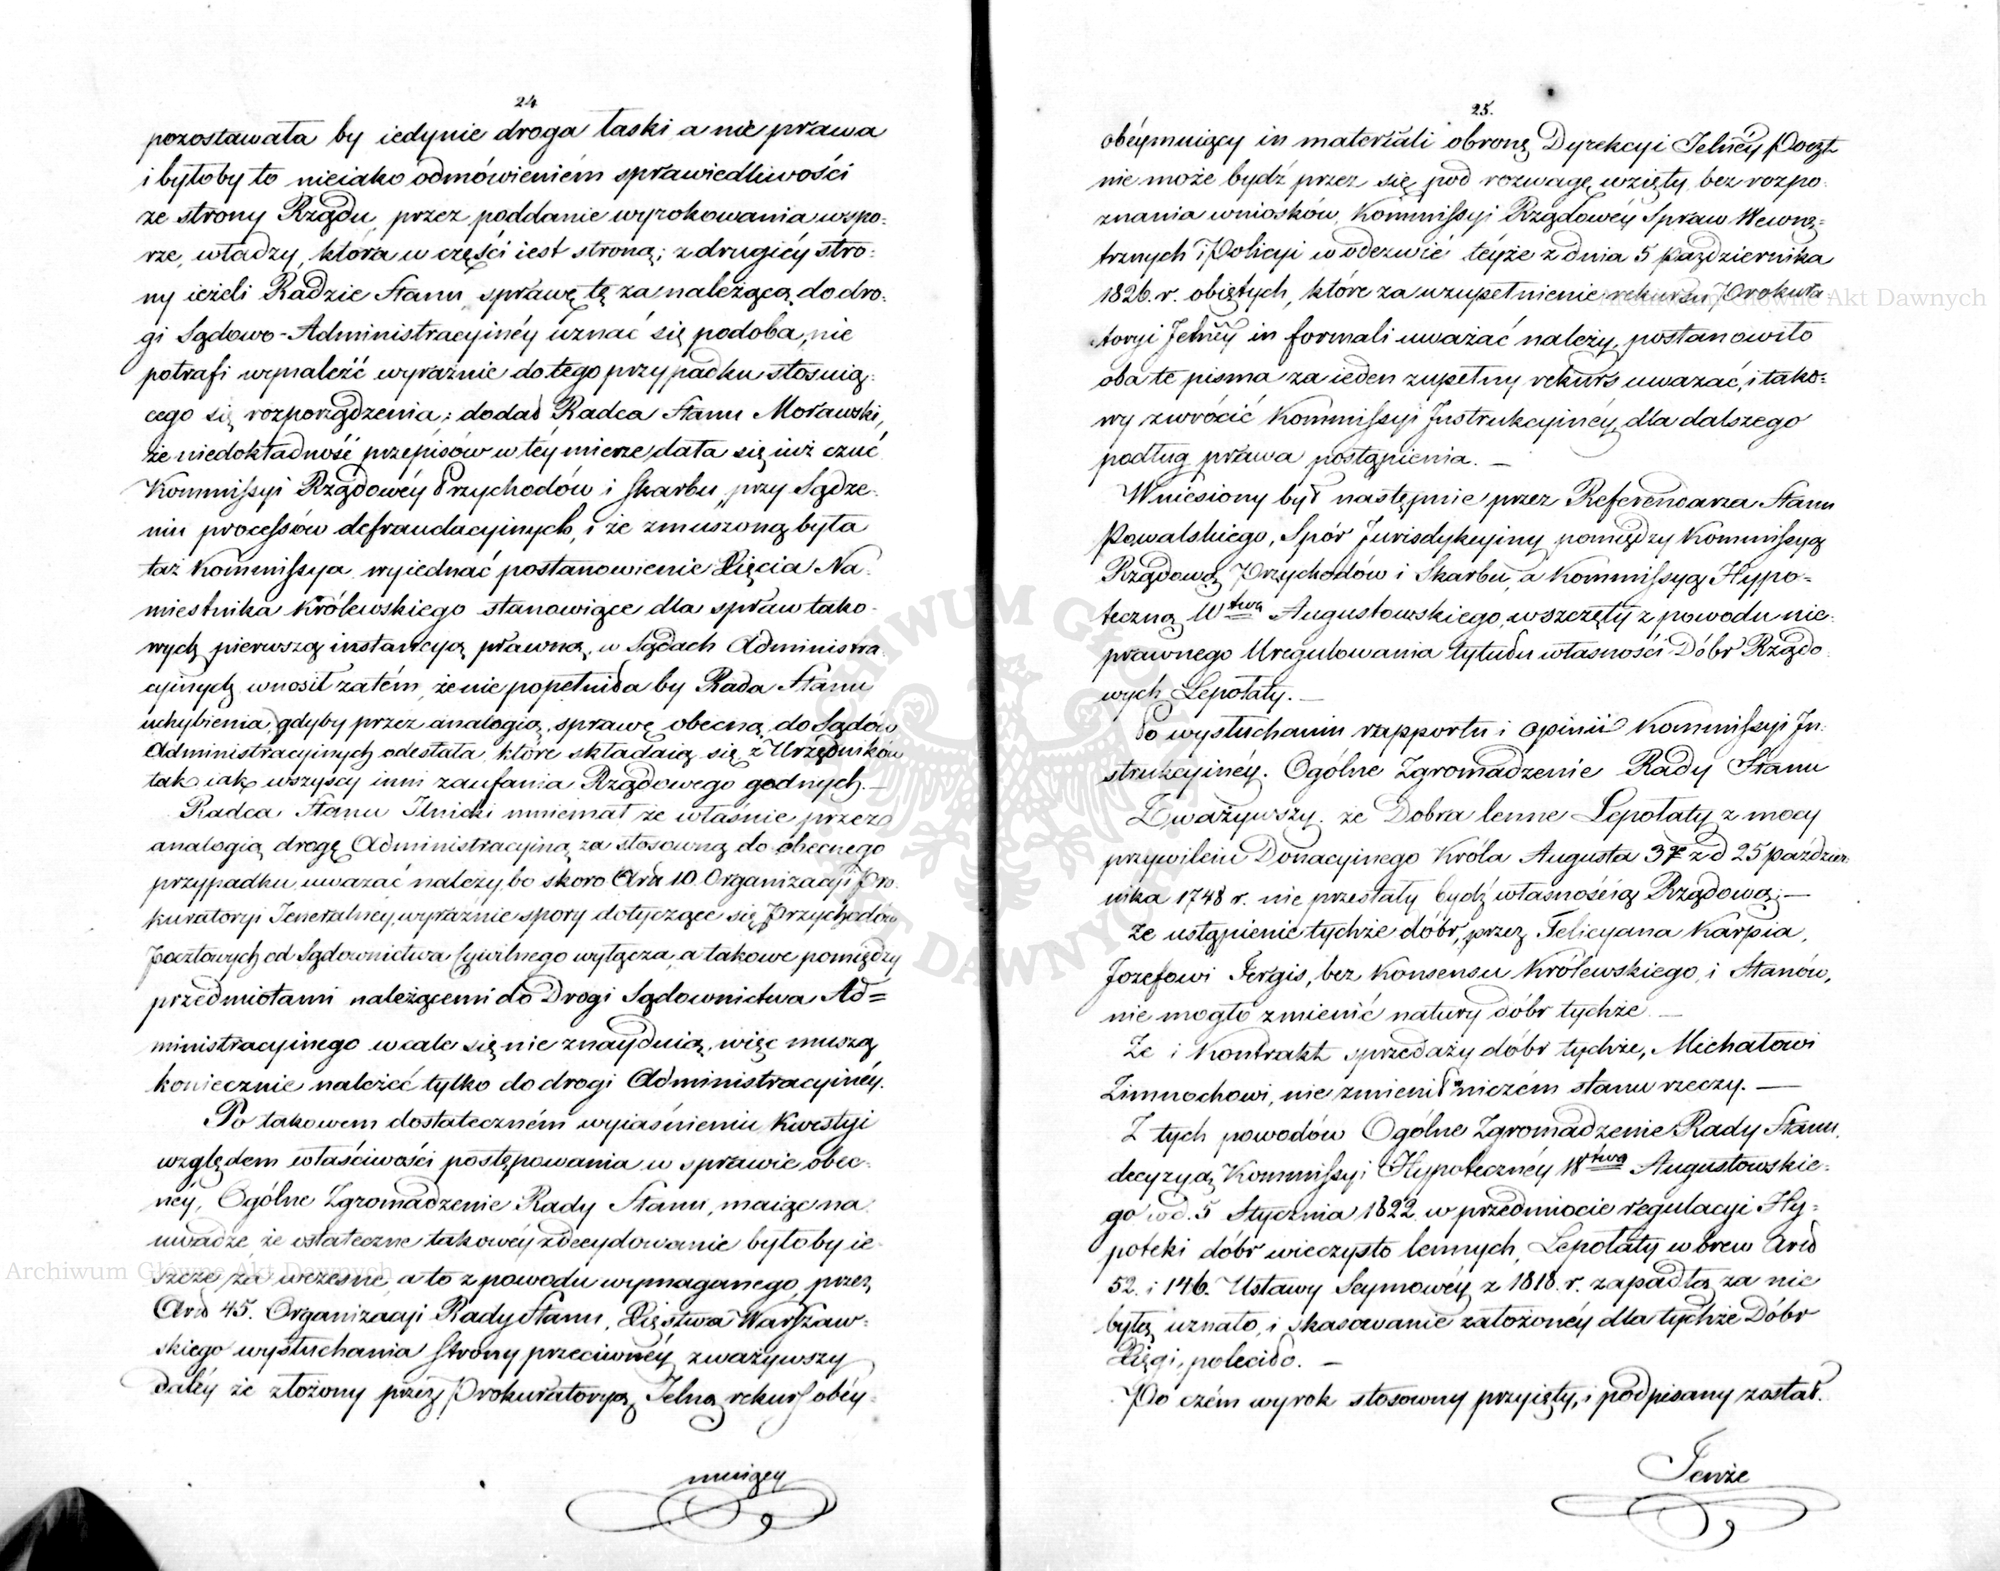 24
pozostawała by iedynie droga łaski a nie prawa
i byłoby to nieiako odmówieniem sprawiedliwości
ze strony Rządu, przez poddanie wyrokowania w spo-
rze, władzy, która w części iest stroną; z drugiéy stro-
ny ieżeli Radzie Stanu, sprawę tę za należącą do dro-
gi Sądowo-Administracyinéy uznać się podoba, nie
potrafi wynaleźć wyraźnie do tego przypadku stosuią-
cego się rozporządzenia; dodał Radca Stanu Morawski,
że niedokładność przepisów w téy mierze, dała się iuż czuć
Kommissyi Rządowéy Przychodów i Skarbu, przy Sądze-
niu processów defraudacyinych, i że zmuszoną była
taż Kommissya wyiednać postanowienie Xięcia Na-
miestnika Królewskiego stanowiące dla spraw tako-
wych pierwszą instancyą prawną, w Sądach Administra-
cyinych wnosił zatém, że nie popełniła by Rada Stanu
uchybienia, gdyby przez analogią, sprawę obecną do Sądów
Administracyinych odesłała, które składaią się z Urzędników
tak iak wszyscy inni zaufania Rządowego godnych.—
Radca Stanu Ilnicki mniemał że właśnie przez
analogią drogę Administracyiną za stosowną do obecnego
przypadku uważać należy, bo skoro Art 10. Organizacyi Pro-
kuratoryi Jeneralnéy, wyraźnie spory dotyczące się Przychodów
Pocztowych od Sądownictwa Cywilnego wyłącza, a takowe pomiędzy
przedmiotami należącemi do Drogi Sądownictwa Ad=
ministracyinego wcale się nie znayduią, więc muszą
koniecznie należeć tylko do drogi Administracyinéy.
Po takowem dostateczném wyiaśnieniu kwestyi
względem właściwości postępowania w sprawie obec-
néy, Ogólne Zgromadzenie Rady Stanu, maiąc na
uwadze, że ostateczne takowéy zdecydowanie byłoby ie-
szcze za wczesne, a to z powodu wymaganego, przez
Art 45. Organizacyi Rady Stanu, Xięstwa Warszaw-
skiego wysłuchania strony przeciwnéy, zważywszy
daléy że złożony przez Prokuratoryą Jelną rekurs obéy-
muiący
25.
obéymuiący in materiali obronę Dyrekcyi Jelnéy Poczt
nie może bydź przez się pod rozwagę wzięty, bez rozpo-
znania wniosków Kommissyi Rządowéy Spraw Wewnę-
trznych i Policyi w odezwie téyże z dnia 5 Października
1826. r. obiętych, które za uzupełnienie rekursu Prokura-
toryi Jelnéy in formali uważać należy, postanowiło
oba te pisma za ieden zupełny rekurs uważać, i tako-
wy zwrócić Kommissyi Instrukcyinéy, dla dalszego
podług prawa postąpienia.—
Wniesiony był następnie przez Referendarza Stanu
Powalskiego, Spór Jurisdykcyiny pomiędzy Kommissyą
Rządową Przychodów i Skarbu, a Kommissyą Hypo-
teczną Wtwa Augustowskiego, wszczęty z powodu nie-
prawnego Uregulowania tytułu własności Dóbr Rządo-
wych Lepołaty.—
Po wysłuchaniu rapportu i opinii Kommissyi In-
strukcyinéy. Ogólne Zgromadzenie Rady Stanu
Zważywszy. że Dobra lenne Lepołaty z mocy
przywileiu Donacyinego Króla Augusta 3go z d 25 Paździer-
nika 1748 r. nie przestały bydź własnością Rządową;—
że ustąpienie tychże dóbr, przez Felicyana Karpia,
Jozefowi Fergis, bez Konsensu Królewskiego, i Stanów,
nie mogło zmienić natury dóbr tychże —
Że i Kontrakt sprzedaży dóbr tychże, Michałowi
Zimnochowi, nie zmienił w niczém stanu rzeczy. —
Z tych powodów Ogólne Zgromadzenie Rady Stanu,
decyzyą Kommissyi Hypotecznéy Wtwa Augustowskie-
go w d. 5 Stycznia 1822. w przedmiocie regulacyi Hy-
poteki dóbr wieczysto lennych, Lepołaty wbrew Art
52. i 146. Ustawy Seymowéy z 1818. r. zapadłą za nie
byłą uznało, i skasowanie założonéy dla tychże Dóbr
Xięgi, poleciło. —
Po czém wyrok stosowny przyięty, i podpisany został.
Tenże
Archiwum Główne Akt Dawnych
Archiwum Główne Akt Dawnych
ARCHIWUM GŁÓWNE AKT DAWNYCH